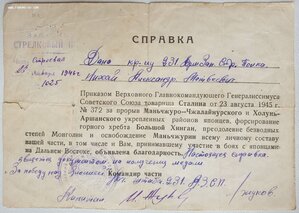 СПРАВКА
СТРЕЛКОВЫЙ П
Строевая
января 1946 г.
1025
Дана кр-цу 231
Полка
Михай Александр
Приказом Верховного Главнокомандующего Генералиссимуса
Советского Союза товарища Сталина от 23 августа 1945 г.
№ 372 за прорыв Маньчжуро-Чжалайнурского и Халун-
Аршанского укрепленных районов японцев, форсирование
горного хребта Большой Хинган, преодоление безводных
степей Монголии и освобождение Маньчжурии всему личному составу
нашей части, в том числе и Вам, принимавшему участие в боях с японцами
на Дальнем Востоке, объявлена благодарность. Настоящая справка
документом на получение медали
За победу над Японией Командир части
231
Капитан